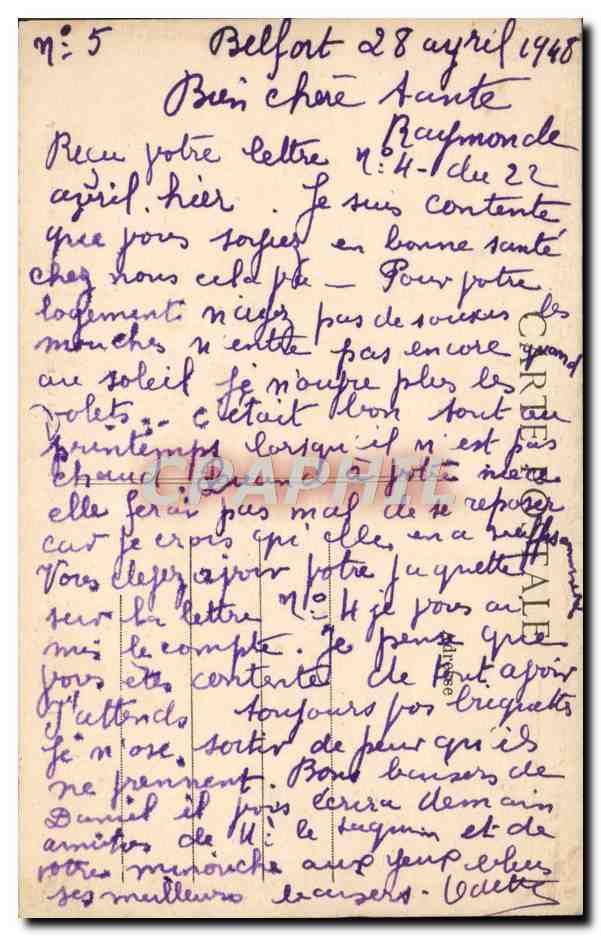 n° 5 Belfort 28 avril 1948
Bien chère tante
Raymonde
Reçu votre lettre n° 4 - du 22
avril. hier. Je suis contente
que vous soyiez en bonne santé
chez nous cela va - Pour votre
logement n'ayez pas de soucis les
mouches n'entre pas encore quand
au soleil je n'ouvre plus les
volets... c'était bon tout au
printemps lorsqu'il n'est pas
chaud. Quand à votre mère
elle ferai pas mal de se reposer
car je crois qu'elle en a suffisamment
Vous devez avoir votre jaquette
sur la lettre n° 4 je vous ai
mis le compte. Je pense que
vous êtes contente de tout avoir
J'attends toujours vos briquettes
je n'ose sortir de peur qu'ils
ne viennent. Bons baisers de
Daniel il vous écrira demain
amitiés de et de
votre minouche aux yeux bleus
ses meilleurs baisers - Odette
CARTE POSTALE
Adresse
CPAPHIL.COM